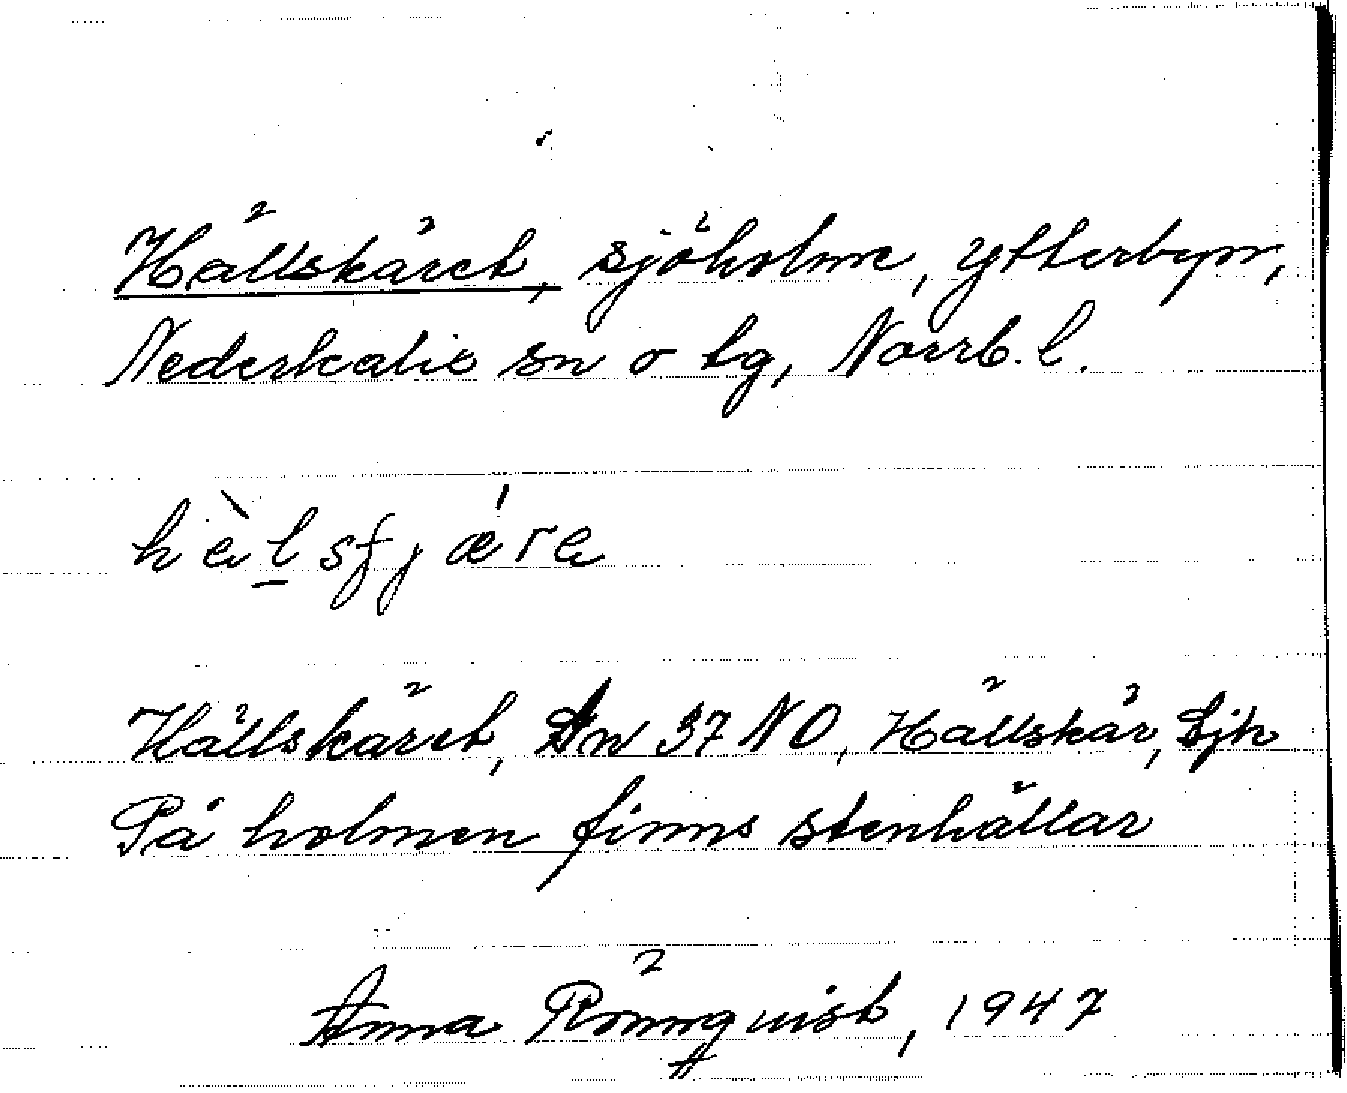 Hällskäret, sjöholme, Ytterbyn,
Nederkalix sn o tg, Norrb. l.
hèlsfjǽra
Hällskäret, Sn 37 NO, Hällskär, Sjk
På holmen finns stenhällar
Anna Rönnquist, 1947